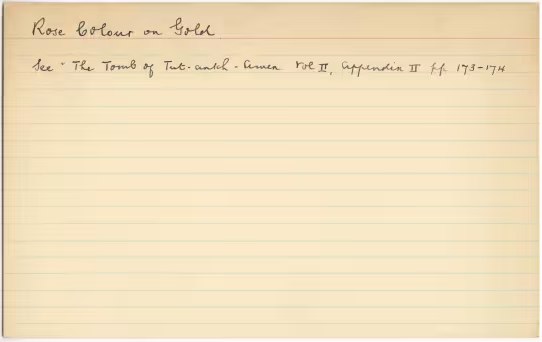 Rose Colour on Gold.
See "The Tomb of Tut-ankh-Amen Vol II, Appendix II pp. 173-174